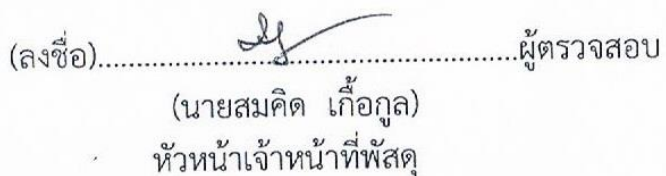 (ลงชื่อ)..................................................ผู้ตรวจสอบ
(นายสมคิด เกื้อกูล)
หัวหน้าเจ้าหน้าที่พัสดุ